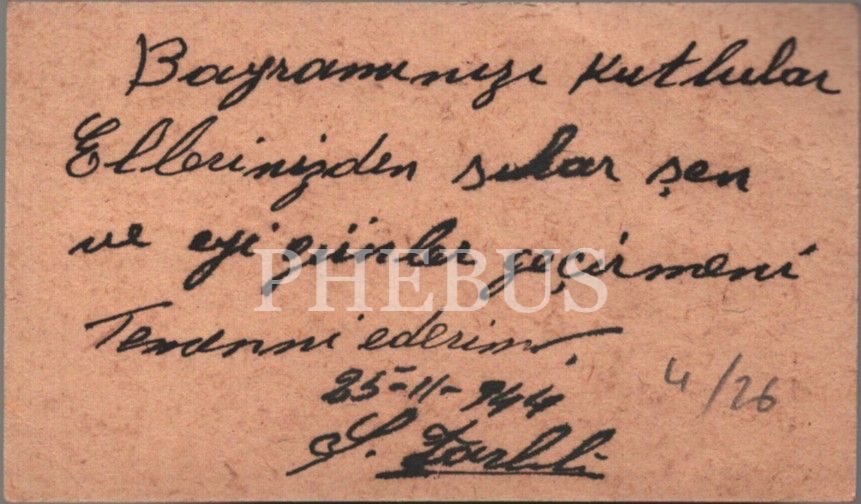 Bayramınızı kutlular
Ellerinizden sıkar şen
ve eyi günler geçirmeni
Temenni ederim.
25-11-944
4/26
Ş.
PHEBUS